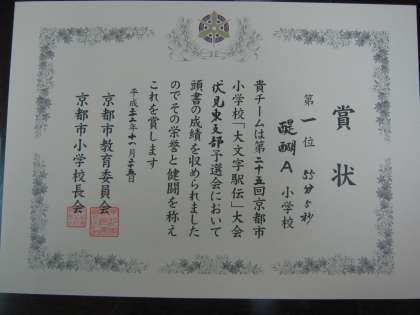 賞状
第一位 分 秒
醍醐A小学校
貴チームは第二十五回京都市
小学校「大文字駅伝」大会
伏見東支部予選会において
頭書の成績を収められました
のでその栄誉と健闘を称え
これを賞します
平成 年十一月 日
京都市教育委員会
京都市小学校長会